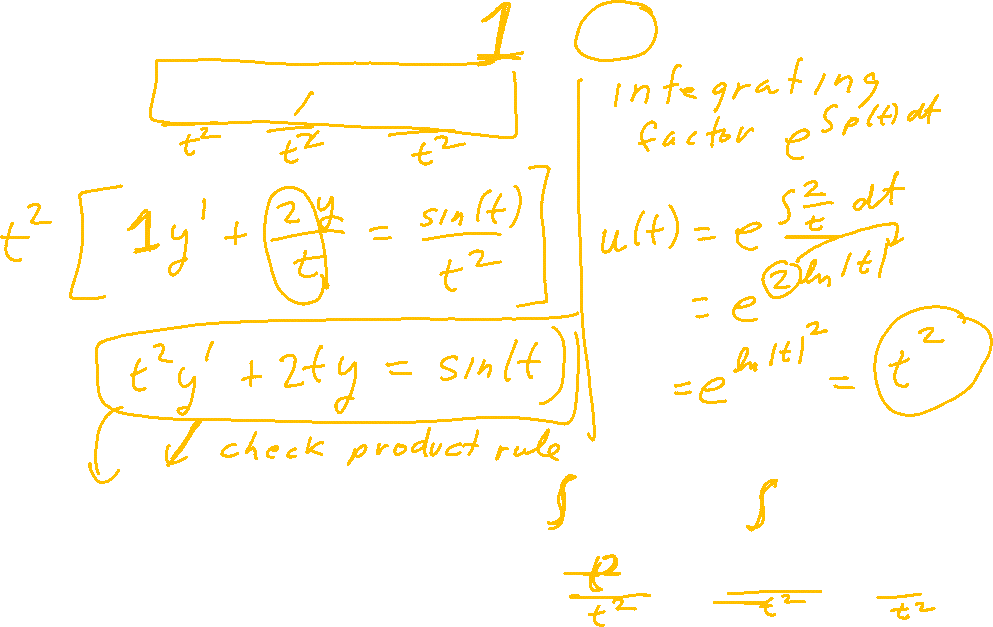 1
t² t² t²
t² [ 1y' + 2y/t = sin(t)/t² ]
t²y' + 2ty = sin(t)
check product rule
integrating
factor e^∫p(t)dt
u(t) = e^∫2/t dt
= e^2ln|t|
= e^ln|t|² = t²
∫ ∫
t² t² t²